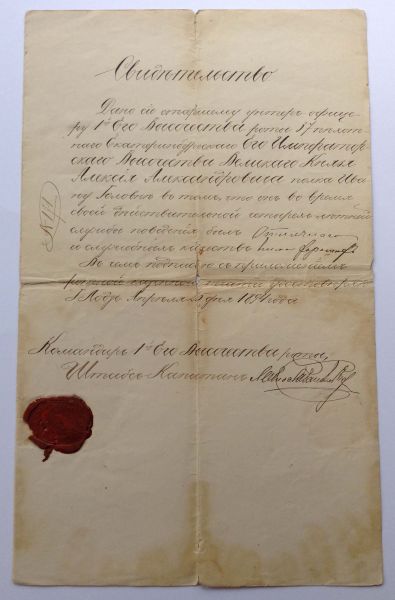 Свидѣтельство
Дано сіе старшему унтеръ-офице-
ру 1й Его Высочества роты 37 пѣхот-
наго Екатеринбургскаго Его Император-
скаго Высочества Великаго Князя
Алексѣя Александровича полка Ива-
ну Головъ въ томъ, что онъ во время
своей дѣйствительной
службы поведенія былъ Отличнаго
и служебныя качества имѣлъ
Въ чемъ подписью съ приложеніемъ
печати
г. Лодзь Апрѣля дня 189 года
Командиръ 1й Его Высочества роты,
Штабсъ-Капитанъ
№